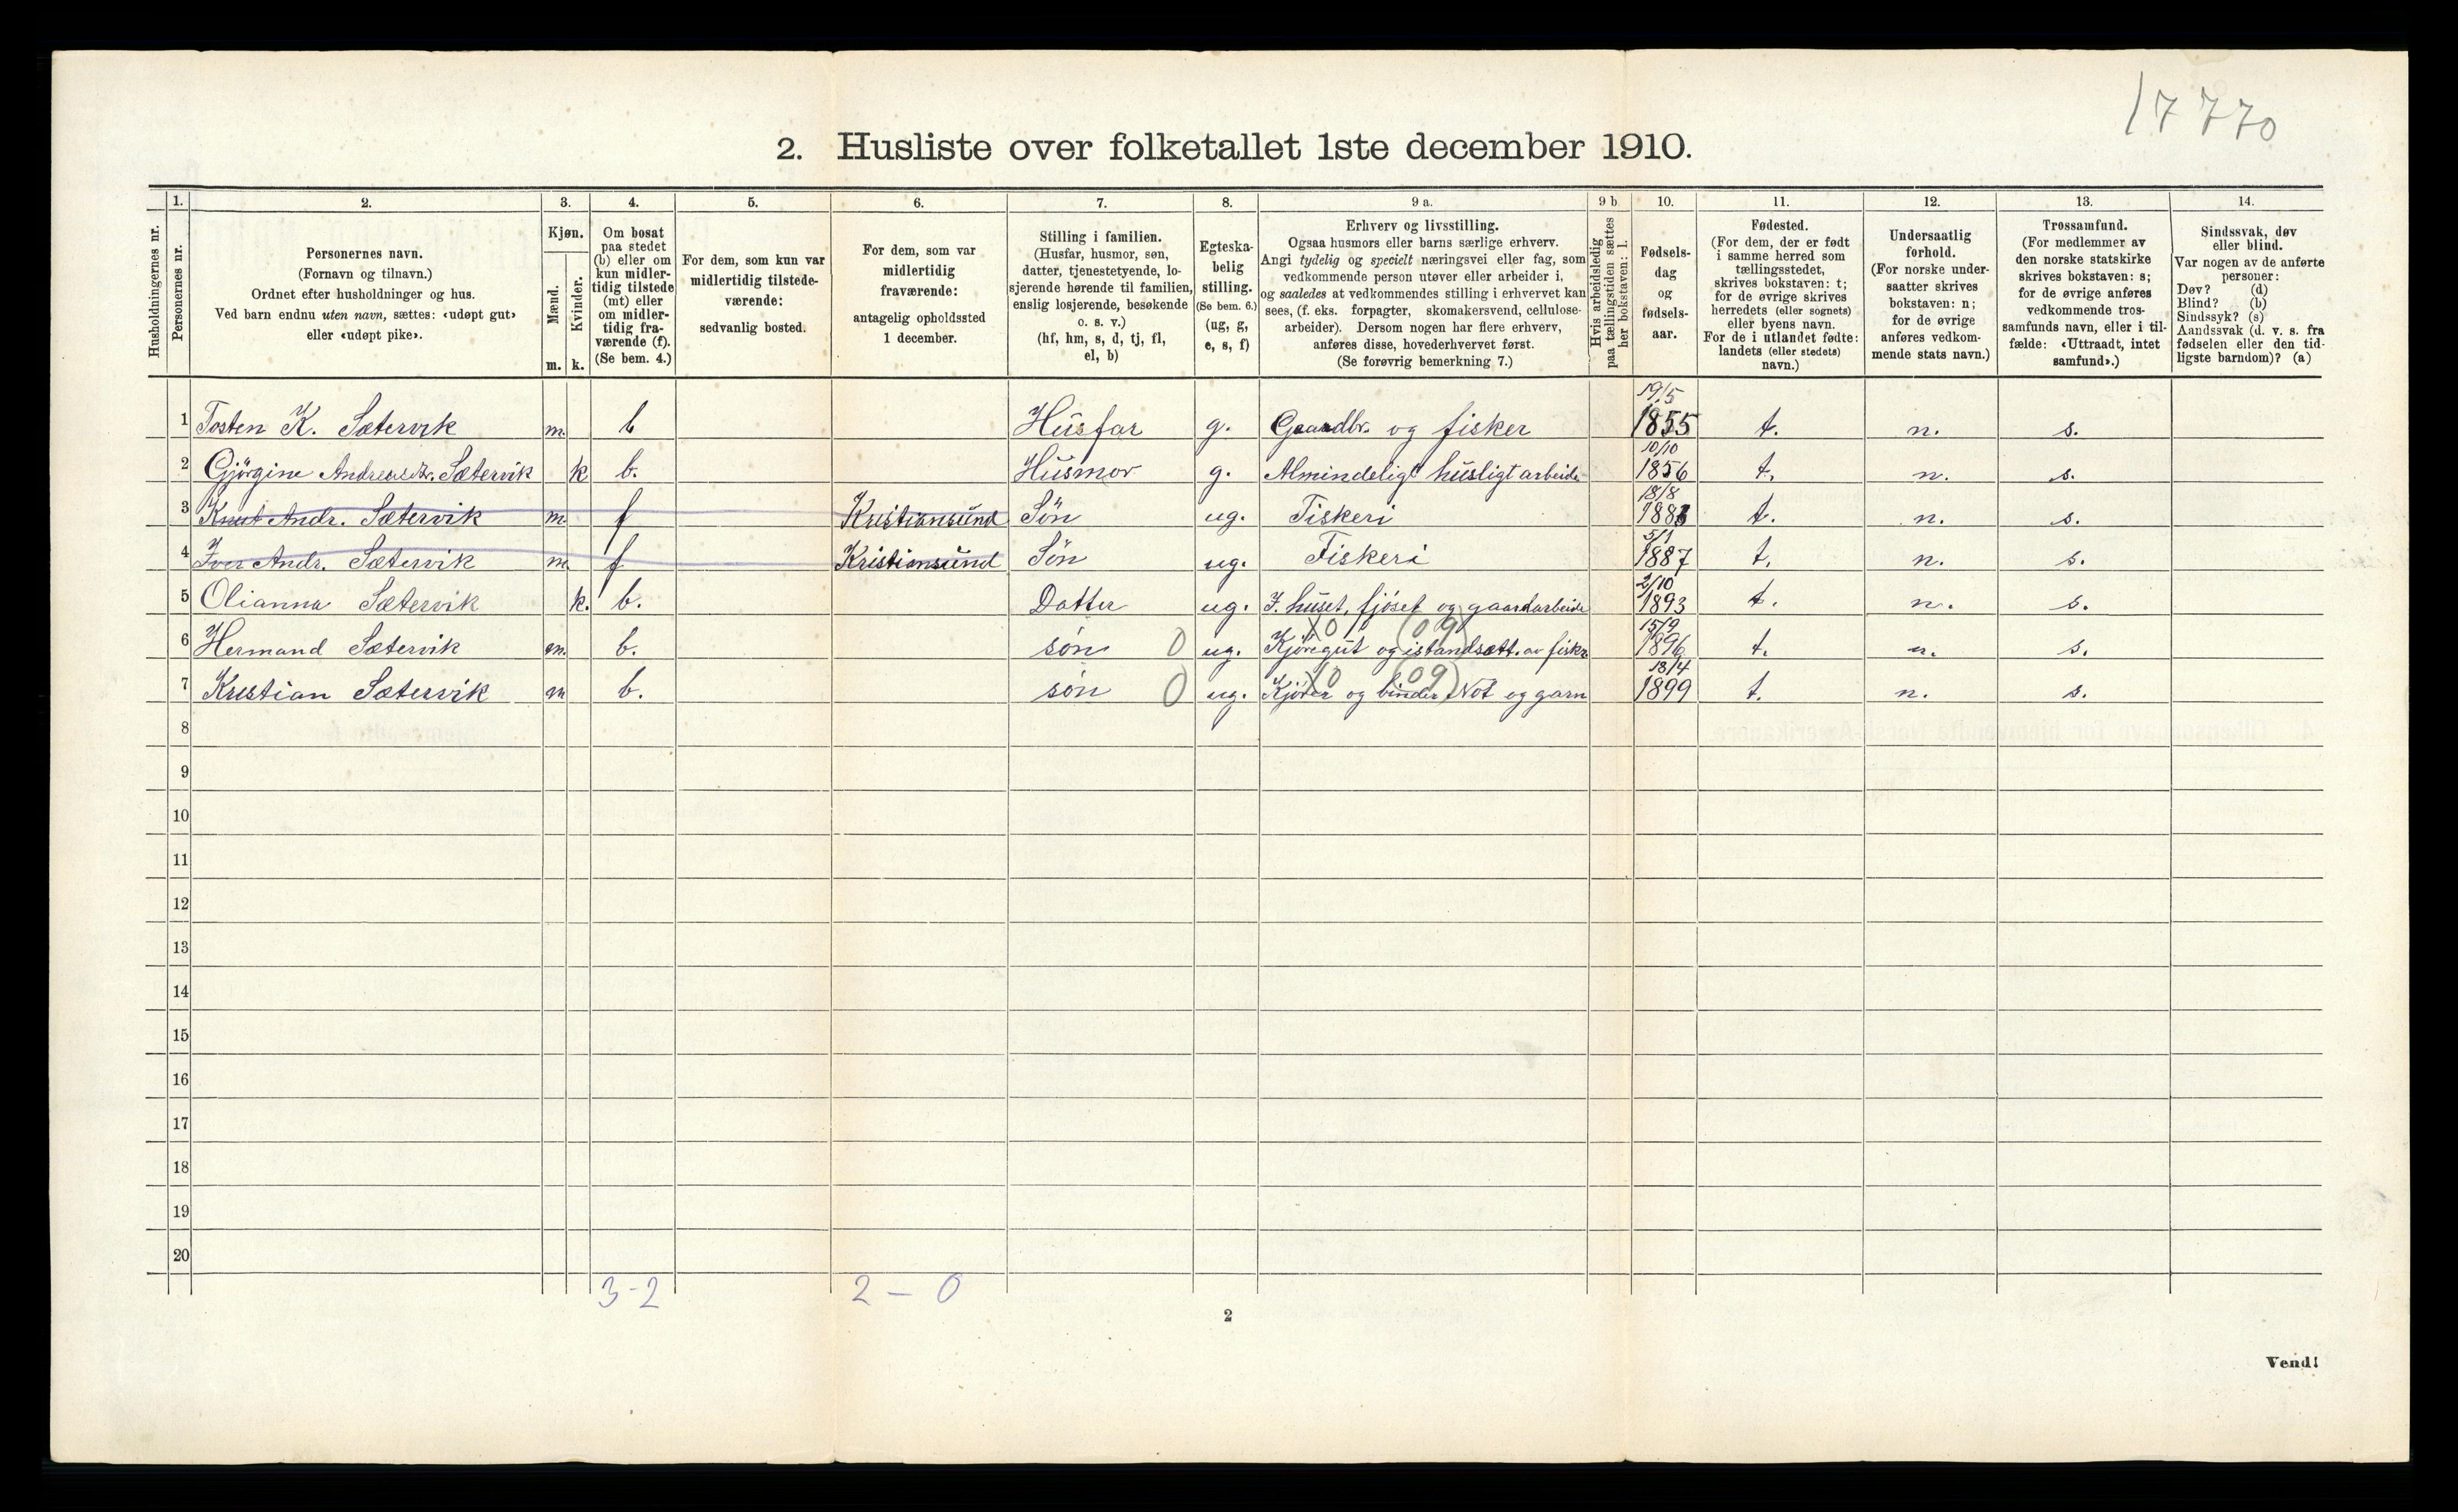 17770
2. Husliste over folketallet 1ste december 1910.
Husholdningernes nr.
1.
Personernes nr.
2.
Personernes navn.
(Fornavn og tilnavn.)
Ordnet efter husholdninger og hus.
Ved barn endnu uten navn, sættes: «udøpt gut»
eller «udøpt pike».
3.
Kjøn.
Mænd.
Kvinder.
m. k.
4.
Om bosat
paa stedet
(b) eller om
kun midler-
tidig tilstede
(mt) eller
om midler-
tidig fra-
værende (f).
(Se bem. 4.)
5.
For dem, som kun var
midlertidig tilstede-
værende:
sedvanlig bosted.
6.
For dem, som var
midlertidig
fraværende:
antagelig opholdssted
1 december.
7.
Stilling i familien.
(Husfar, husmor, søn,
datter, tjenestetyende, lo-
sjerende hørende til familien,
enslig losjerende, besøkende
o. s. v.)
(hf, hm, s, d, tj, fl,
el, b)
8.
Egteska-
belig
stilling.
(Se bem. 6.)
(ug, g,
e, s, f)
9 a.
Erhverv og livsstilling.
Ogsaa husmors eller barns særlige erhverv.
Angi tydelig og specielt næringsvei eller fag, som
vedkommende person utøver eller arbeider i,
og saaledes at vedkommendes stilling i erhvervet kan
sees, (f. eks. forpagter, skomakersvend, cellulose-
arbeider). Dersom nogen har flere erhverv,
anføres disse, hovederhvervet først.
(Se forøvrig bemerkning 7.)
9 b
Hvis arbeidsledig
paa tællingstiden sættes
her bokstaven: l.
10.
Fødsels-
dag
og
fødsels-
aar.
11.
Fødested.
(For dem, der er født
i samme herred som
tællingsstedet,
skrives bokstaven: t;
for de øvrige skrives
herredets (eller sognets)
eller byens navn.
For de i utlandet fødte:
landets (eller stedets)
navn.)
12.
Undersaatlig
forhold.
(For norske under-
saatter skrives
bokstaven: n;
for de øvrige
anføres vedkom-
mende stats navn.)
13.
Trossamfund.
(For medlemmer av
den norske statskirke
skrives bokstaven: s;
for de øvrige anføres
vedkommende tros-
samfunds navn, eller i til-
fælde: «Uttraadt, intet
samfund».)
14.
Sindssvak, døv
eller blind.
Var nogen av de anførte
personer:
Døv? (d)
Blind? (b)
Sindssyk? (s)
Aandssvak (d. v. s. fra
fødselen eller den tid-
ligste barndom)? (a)
1 Tosten K. Sætervik m. b Husfar g. Gaardbr. og fisker 19/5 1855 t. n. s.
2 Gjörgine Andreasdtr. Sætervik k b. Husmor g. Almindeligt husligt arbeide 10/10 1856 t. n. s.
3 Knut Andr. Sætervik m. f Kristiansund Sön ug. Fiskeri 18/8 1883 t. n. s.
4 Iver Andr. Sætervik m. f Kristiansund Sön ug. Fiskeri 5/1 1887 t. n. s.
5 Olianna Sætervik k. b. Datter ug. I. huset, fjöset og gaardarbeide 2/10 1893 t. n. s.
6 Hermand Sætervik m. b. sön 0 ug. Kjöregut og istandsætt. av fiskr. X0 (09) 15/9 1896 t. n. s.
7 Kristian Sætervik m b. sön 0 ug. Kjörer og binder Not og garn X0 (09) 18/4 1899 t. n. s.
8
9
10
11
12
13
14
15
16
17
18
19
20
3-2 2-0
2
Vend!